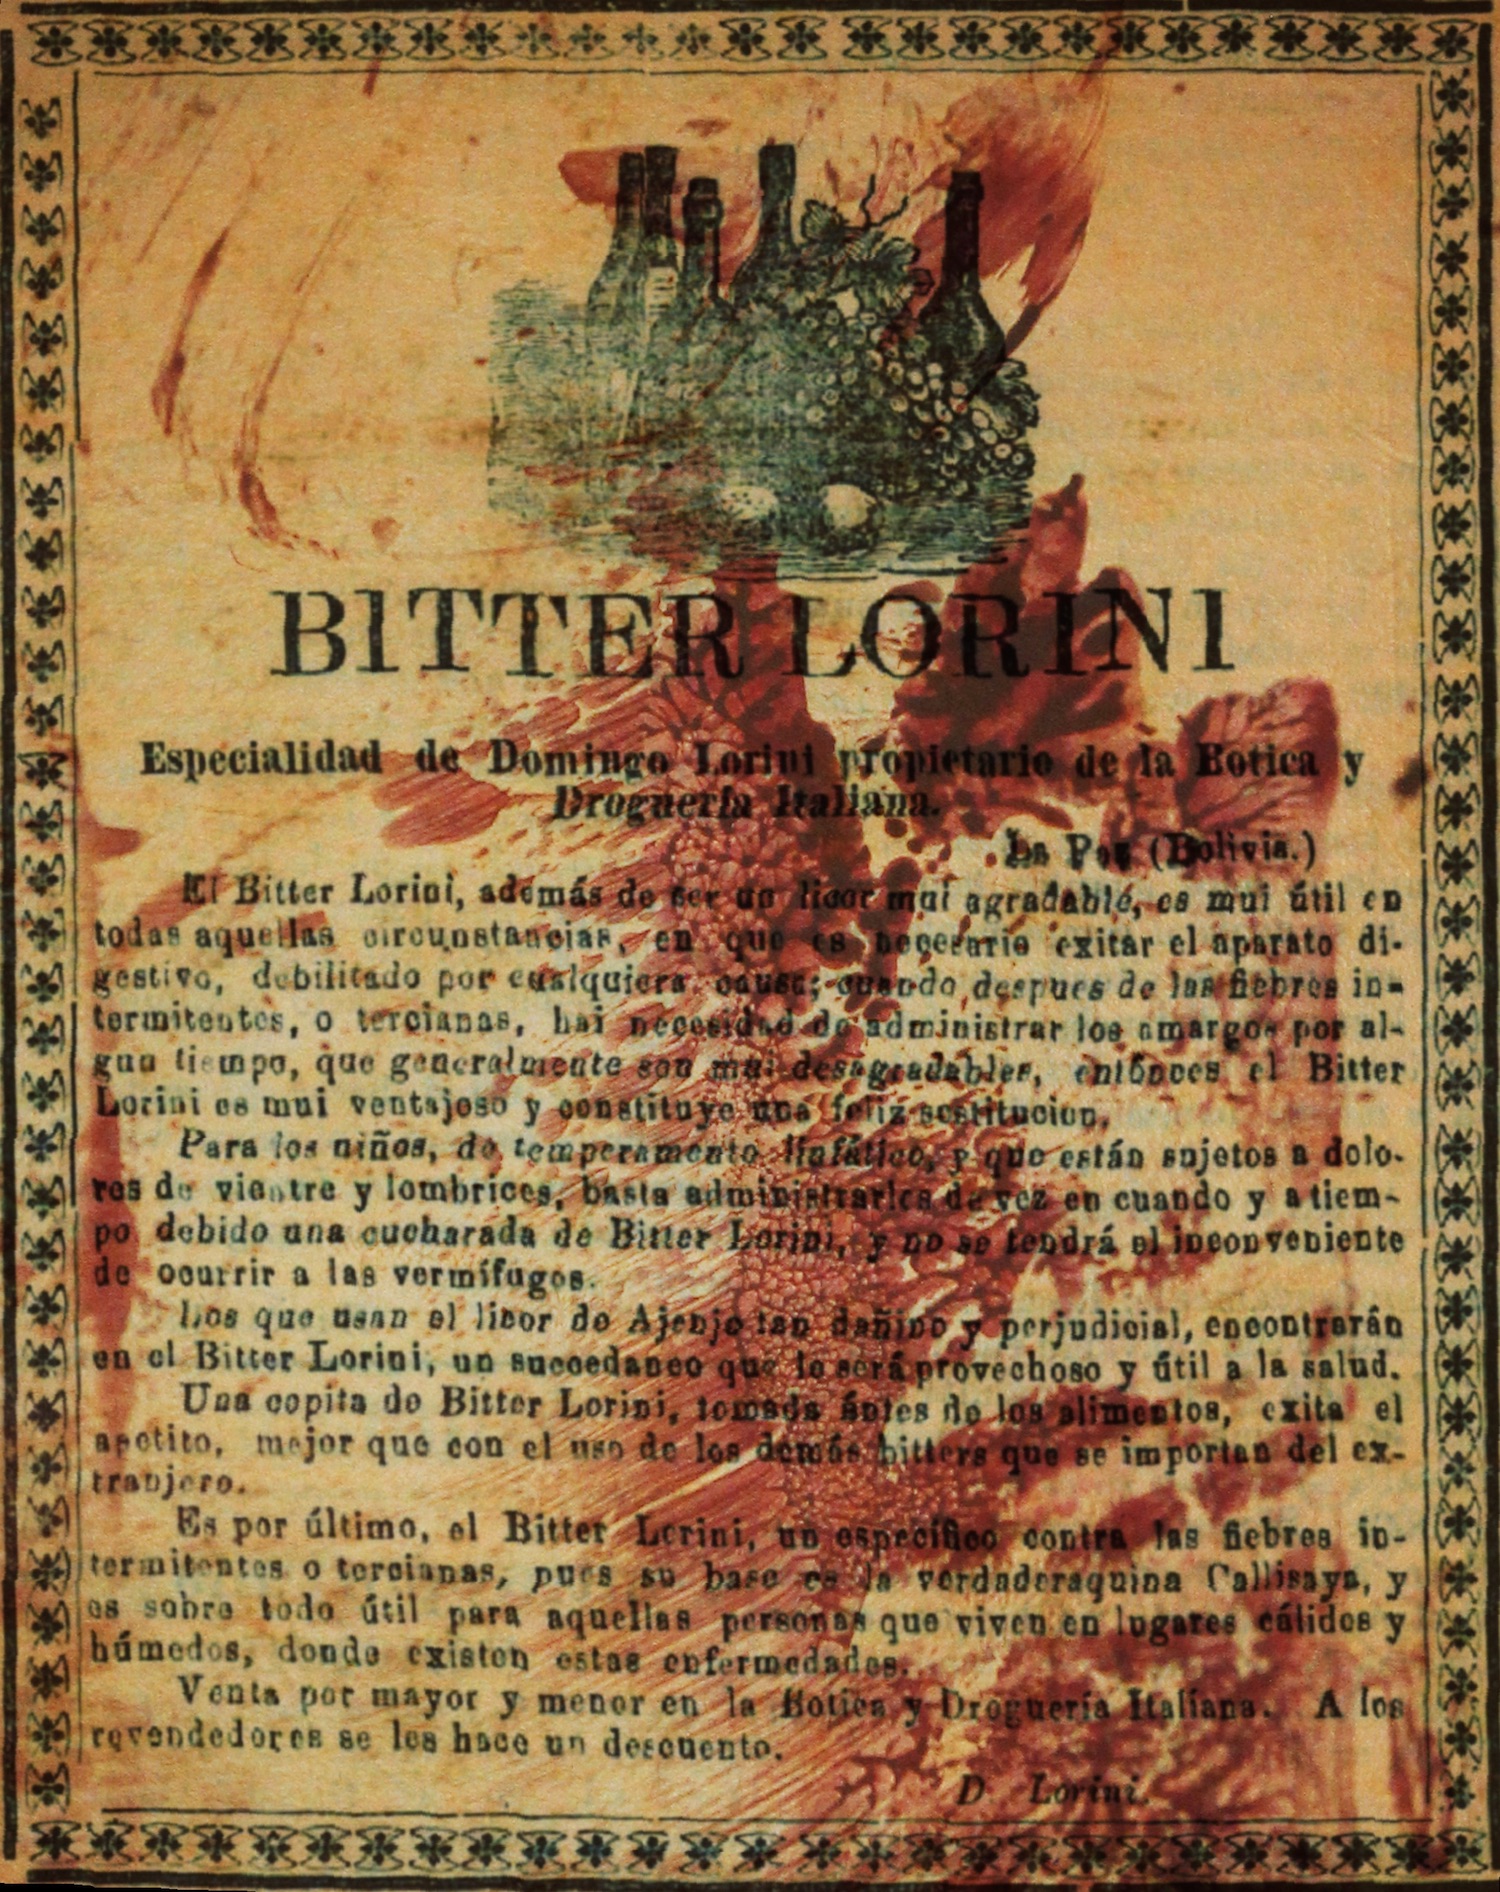 BITTER LORINI
Especialidad de Domingo Lorini propietario de la Botica y
Droguería Italiana.
La Paz (Bolivia.)
El Bitter Lorini, además de ser un licor mui agradable, es mui útil en
todas aquellas circunstancias, en que es necesario exitar el aparato di-
gestivo, debilitado por cualquiera causa; cuando despues de las fiebres in-
termitentes, o tercianas, hai necesidad de administrar los amargos por al-
gun tiempo, que generalmente son mui desagradables, entónces el Bitter
Lorini es mui ventajoso y constituye una feliz sostitucion.
Para los niños, de temperamento linfático, y que están sujetos a dolo-
res de vientre y lombrices, basta administrarles de vez en cuando y a tiem-
po debido una cucharada de Bitter Lorini, y no se tendrá el inconveniente
de ocurrir a las vermífugos.
Los que usan el licor de Ajenjo tan dañino y perjudicial, encontrarán
en el Bitter Lorini, un succedaneo que le será provechoso y útil a la salud.
Una copita de Bitter Lorini, tomada ántes de los alimentos, exita el
apetito, mejor que con el uso de los demás bitters que se importan del ex-
tranjero.
Es por último, el Bitter Lorini, un específico contra las fiebres in-
termitentes o tercianas, pues su base es la verdaderaquina Callisaya, y
es sobre todo útil para aquellas personas que viven en lugares cálidos y
húmedos, donde existen estas enfermedades.
Venta por mayor y menor en la Botica y Droguería Italiana. A los
revendedores se les hace un descuento.
D. Lorini.